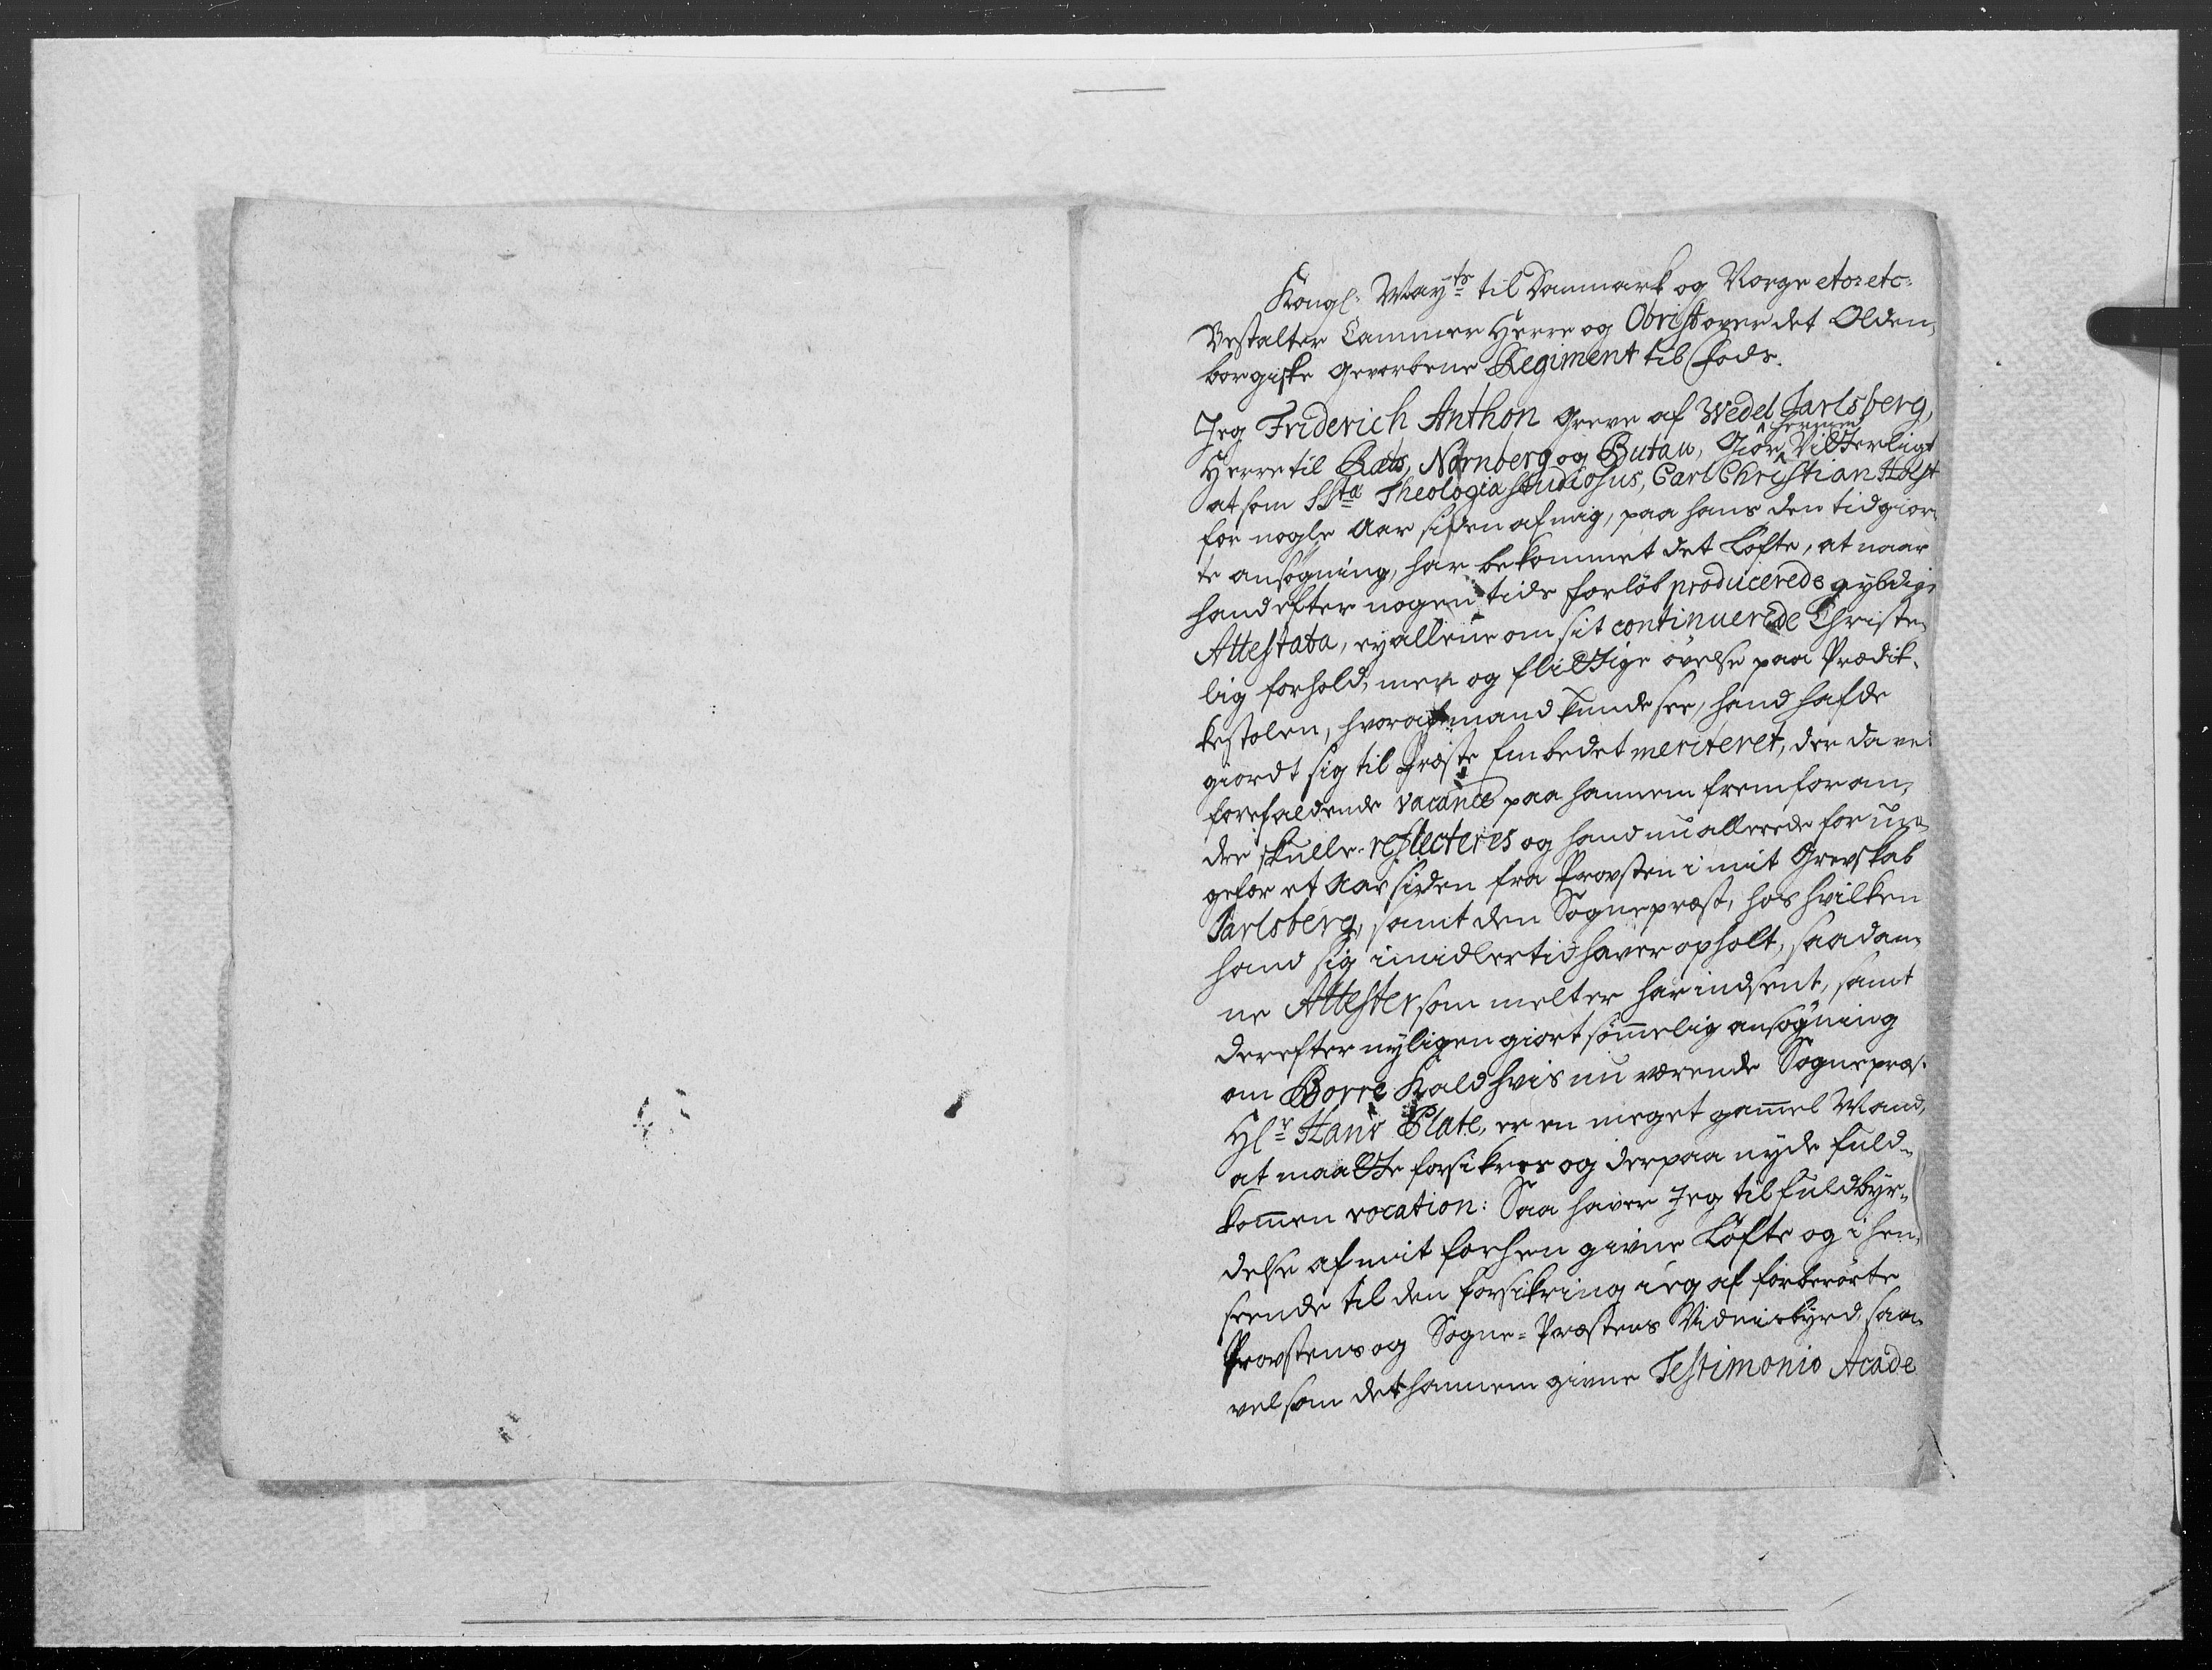 Kongl: Mayts til Danmark og Norge etc: etc:
Bestalter Cammer Herre og Obrist over det Olden,
borgiske Gevorbene Regiment til Fods.
Jeg Friderich Anthon Greve af Wedel Jarlsberg,
hermed
Herre til Rats, Nørnberg og Butau, Giør Vitterligt
at som SSta Theologia Studiosus, Carl Christian Holst
for nogle Aar siden af mig, paa hans den tid gior,
te ansøgning, har bekommet det Løfte, at naar
hand efter nogen tids forløb producerede gyldige
Attestata, ey allene om sit continuerede Christe,
lig forhold, men og flittige øvelse paa Prædik,
kestolen, hvoraf mand kunde see, hand hafde
giordt sig til Præste Embedet meriteret, der da ved
forefaldende vacance paa hannem fremfor an,
dre skulle reflecteres og hand nu allerede for un,
gefær et Aar siden fra Provsten i mit Grevskab
Jarlsberg, samt den Sognepræst, hos hvilken
hand sig imidlertid haver opholt, saadan,
ne Attester som melter har indsent, samt
derefter nyligen giort sømmelig ansøgning
om Borre Kald hvis nu værende Sognepræs.
Hlr Hans Plate, er en meget gammel Mand,
at maatte forsikres og derpaa nyde fuld,
kommen vocation: Saa haver Jeg til fuldbyr,
delse af mit forhen givne Løfte og i hen,
seende til den forsikring ieg af forberørte
Provstens og Sogne-Præstens Vidnisbyrd, saa
vel som det hannem givne Testimonio Acade